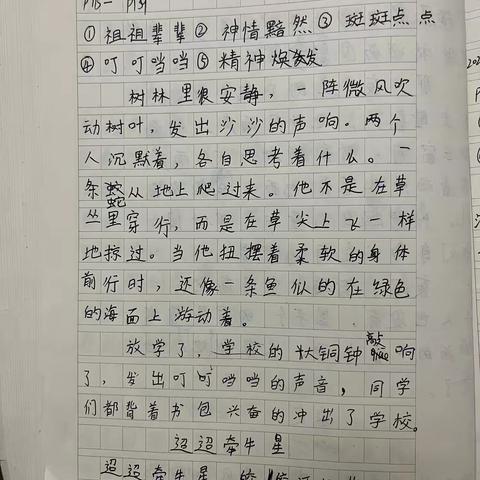 P13— P134
①祖祖辈辈② 神情黯然③ 斑斑点点
④ 叮叮当当⑤精神焕发
树林里很安静，一阵微风吹
动树叶，发出沙沙的声响。两个
人沉默着，各自思考着什么。一
条蛇从地上爬过来。他不是在草
丛里穿行，而是在草尖上飞一样
地掠过。当他扭摆着柔软的身体
前行时，还像一条鱼似的在绿色
的海面上游动着。
放学了，学校的大铜钟敲响
了，发出叮叮当当的声音，同学
们都背着书包兴奋的冲出了学校。
迢迢牵牛星
迢迢牵牛星